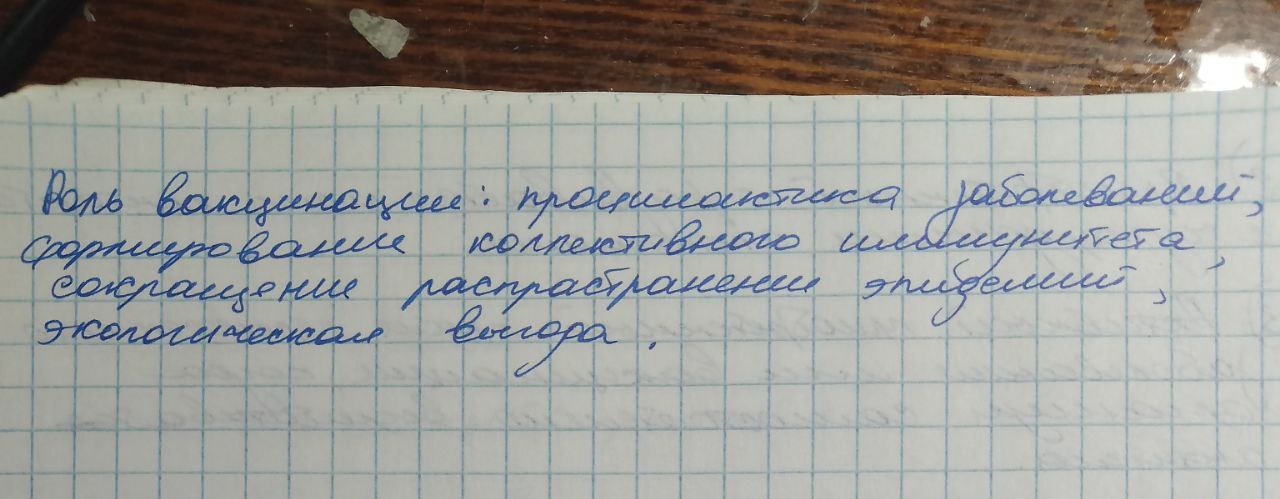 Роль вакцинации: профилактика заболеваний,
формирование коллективного иммунитета,
сокращение распрастранение эпидемий,
экологическая выгода.